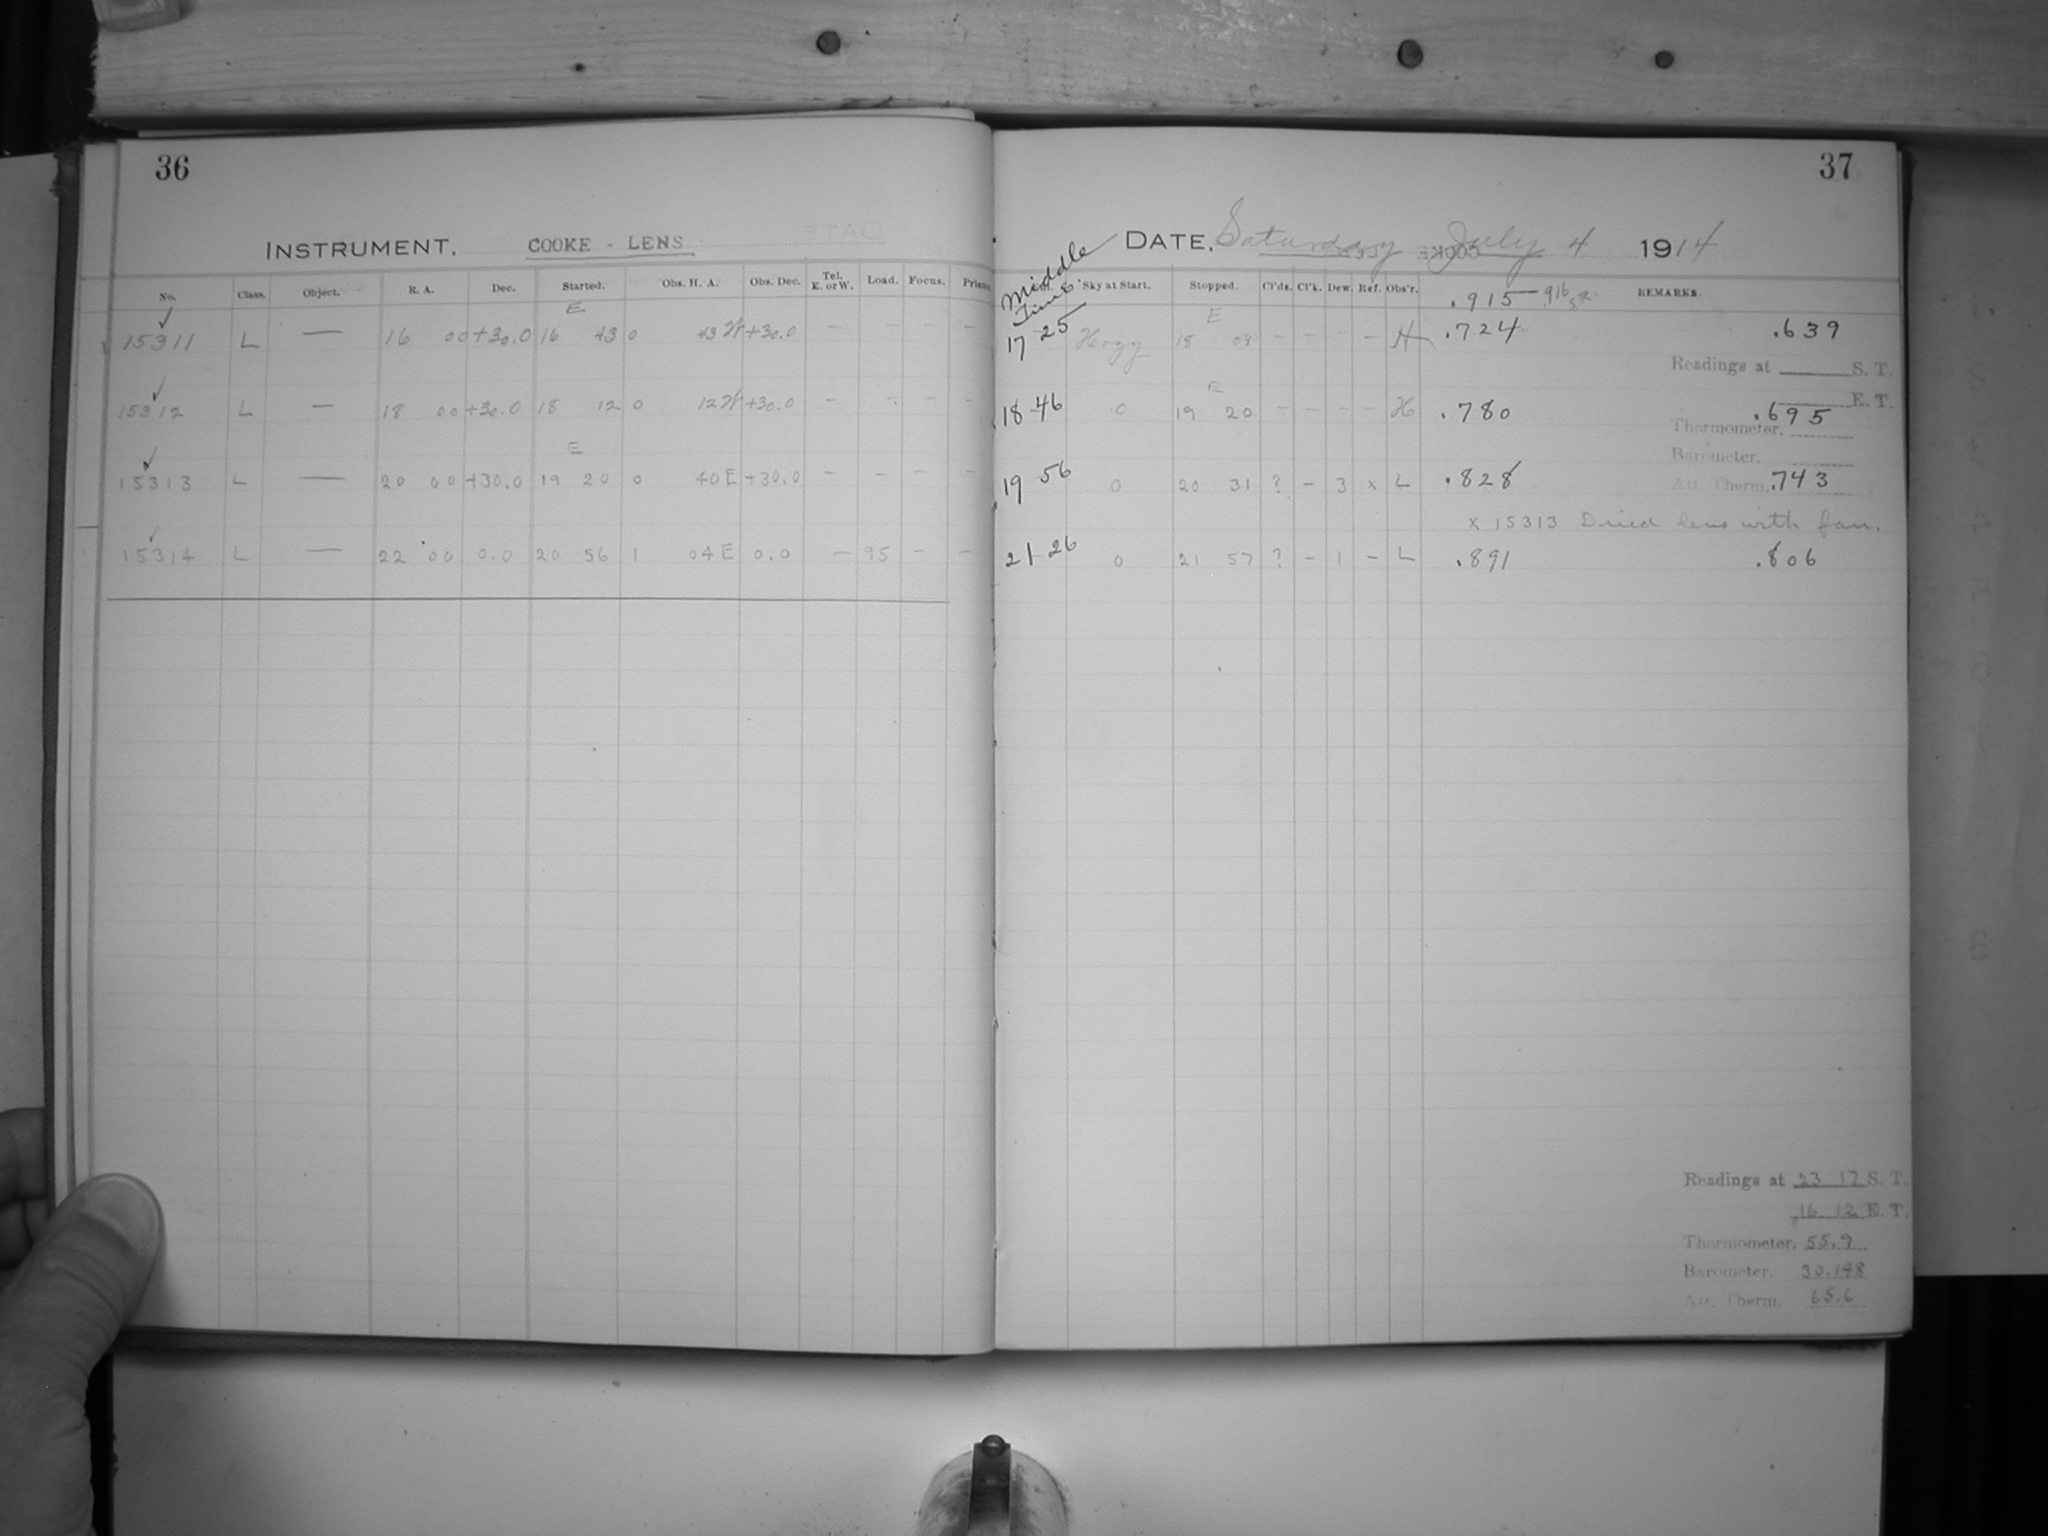 36
INSTRUMENT, COOKE - LENS
No. Class. Object. R. A. Dec. Started. Obs. H. A. Obs. Dec. Tel. E. or W. Load. Focus. Prism
E
15311 L — 16 00 +30.0 16 43 0 43 W +30.0 - - - -
15312 L — 18 00 +30.0 18 12 0 12 W +30.0 - - - -
E
15313 L — 20 00 +30.0 19 20 0 40 E +30.0 - - - -
15314 L — 22 00 0.0 20 56 1 04 E 0.0 - 95 - -
37
DATE, Saturday July 4 1914
Middle Time
Sky at Start. Stopped. Cl'ds. Cl'k. Dew. Ref. Obs'r. REMARKS.
.915 .916
E
17 25 Hazy 18 08 - - - - H .724 .639
Readings at S. T.
E. T.
E
18 46 0 19 20 - - - - H .780 .695
Thermometer.
Barometer.
19 56 0 20 31 ? - 3 x L .828 Att. Therm. .743
x 15313 Dried lens with fan.
21 26 0 21 57 ? - 1 - L .891 .806
Readings at 23 17 S. T.
16 12 E. T.
Thermometer. 55.9
Barometer. 30.148
Att. Therm. 65.6